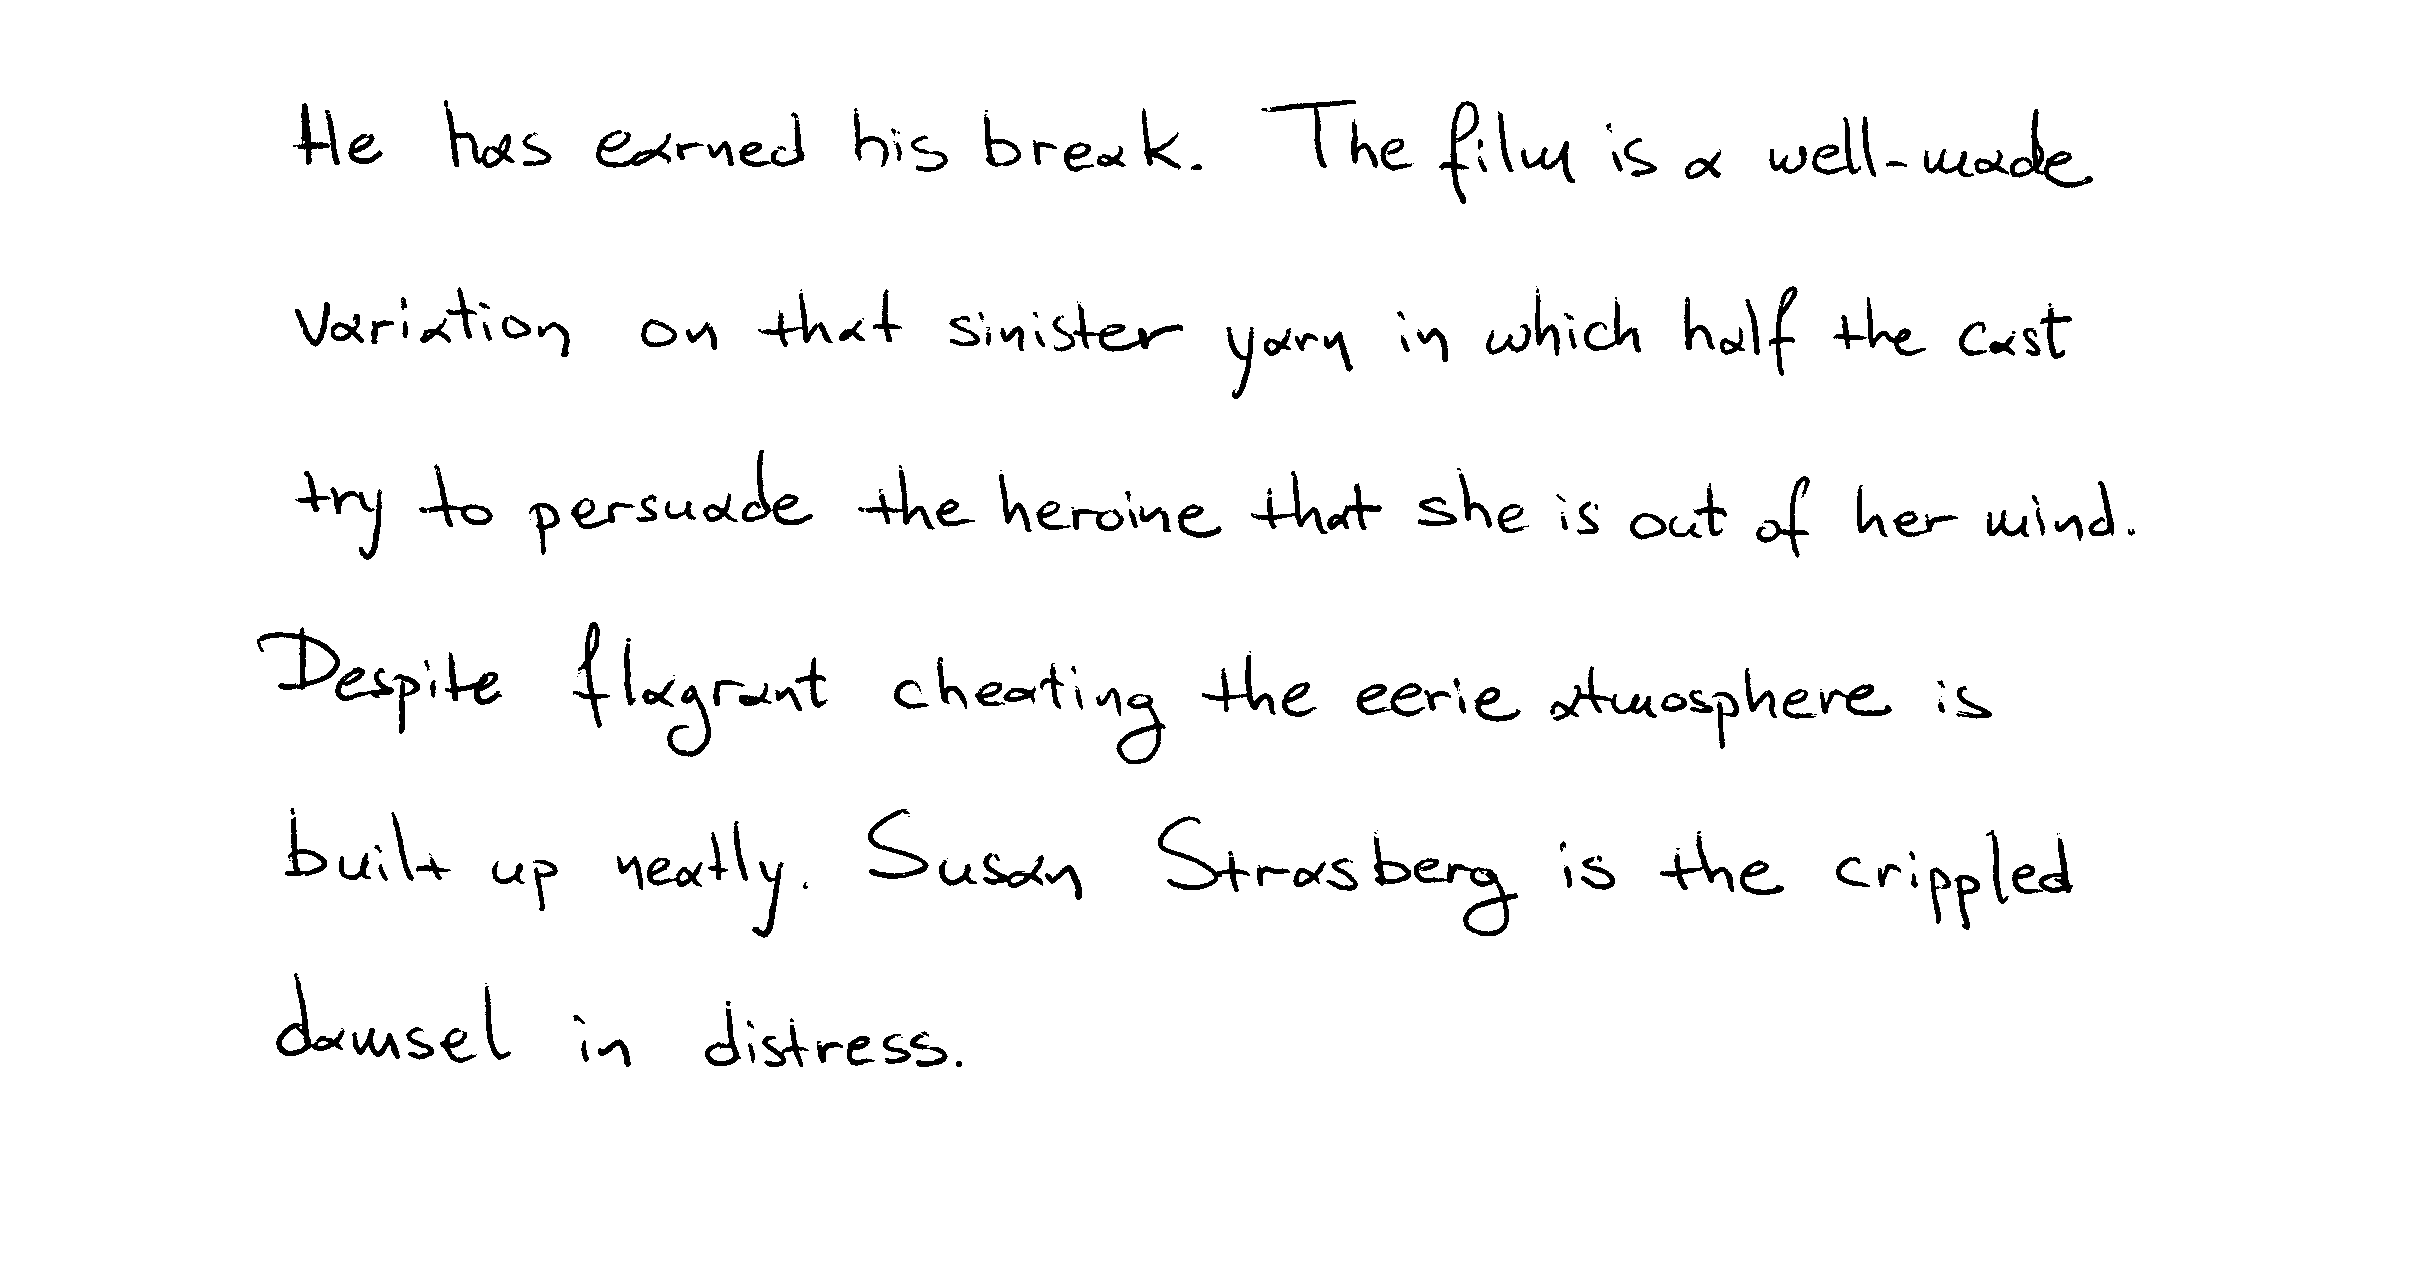 He has earned his break. The film is a well-made
variation on that sinister yarn in which half the cast
try to persuade the heroine that she is out of her mind.
Despite flagrant cheating the eerie atmosphere is
built up neatly. Susan Strasberg is the crippled
damsel in distress.